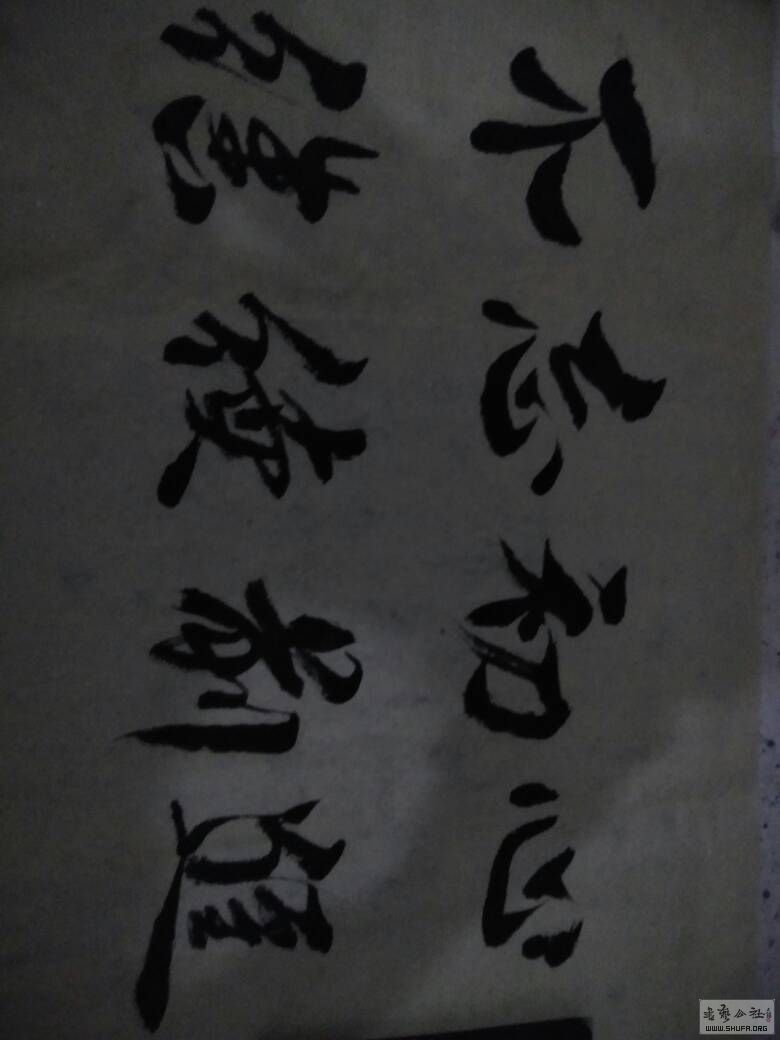 不忘初心
继续前進
书藝公社
WWW.SHUFA.ORG